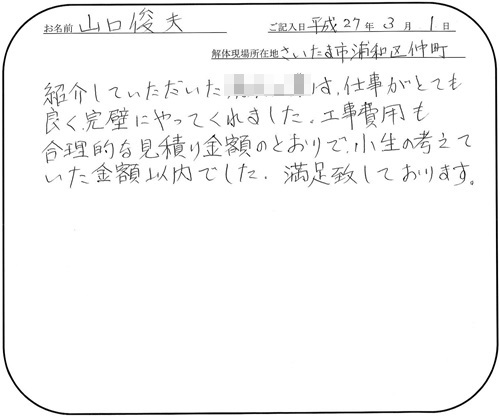 お名前 山口俊夫 ご記入日 平成27年3月1日
解体現場所在地 さいたま市浦和区仲町
紹介していただいた は、仕事がとても
良く、完璧にやってくれました。工事費用も
合理的な見積り金額のとおりで、小生の考えて
いた金額以内でした。満足致しております。